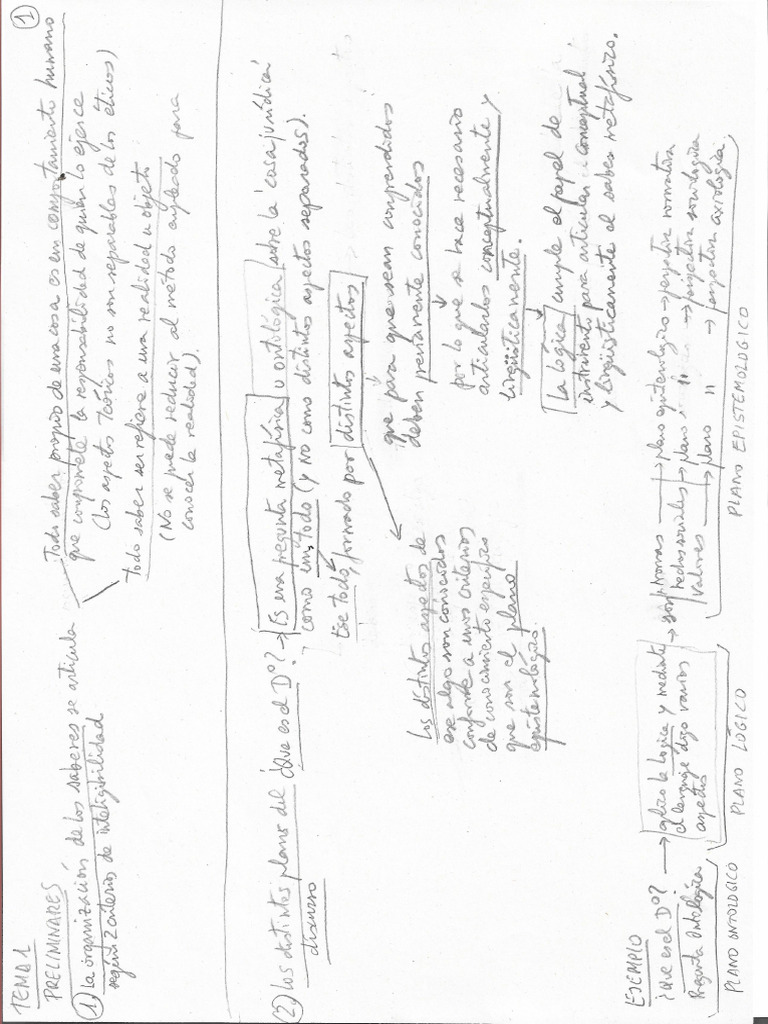 ①
TEMA 1
PRELIMINARES
① La organización de los saberes se articula
según 2 criterios de inteligibilidad
Todo saber propio de una cosa es en comportamiento humano
que compromete la responsabilidad de quien lo ejerce
(Los aspectos teóricos no son separables de los éticos)
todo saber se refiere a una realidad u objeto
(No se puede reducir al método empleado para
conocer la realidad).
② Los distintos planos del
discurso
¿Qué es el Dº? → Es una pregunta metafísica u ontológica sobre la cosa jurídica
como un todo (y NO como distintos aspectos separados).
Ese todo, formado por distintos aspectos
que para que sean comprendidos
deben previamente conocidos
por lo que se hace necesario
articularlos conceptualmente y
lingüísticamente.
La lógica cumple el papel de
instrumento para articular conceptual
y lingüísticamente el saber metafísico.
Los distintos aspectos de
ese algo son conocidos
conforme a unos criterios
de conocimiento específico
que son el plano
epistemológico.
EJEMPLO
¿Qué es el Dº?
Pregunta Ontológica
→ aplico la lógica y mediante
el lenguaje digo varios
aspectos
→ son normas → plano epistemológico → perspectiva normativa
hechos sociales → plano " → perspectiva sociológica
valores → plano " → perspectiva axiológica
PLANO ONTOLOGICO
PLANO LÓGICO
PLANO EPISTEMOLOGICO